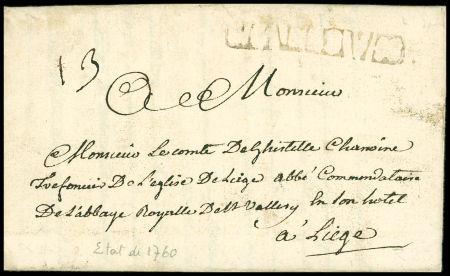 13
A Monsieur
Monsieur Le comte De Ghistelle Chanoine
Trefoncier De L'eglise De Liége abbé Commendataire
De L'abbaye Royalle De St Vallery En son hotel
a' Liege
Etat de 1760